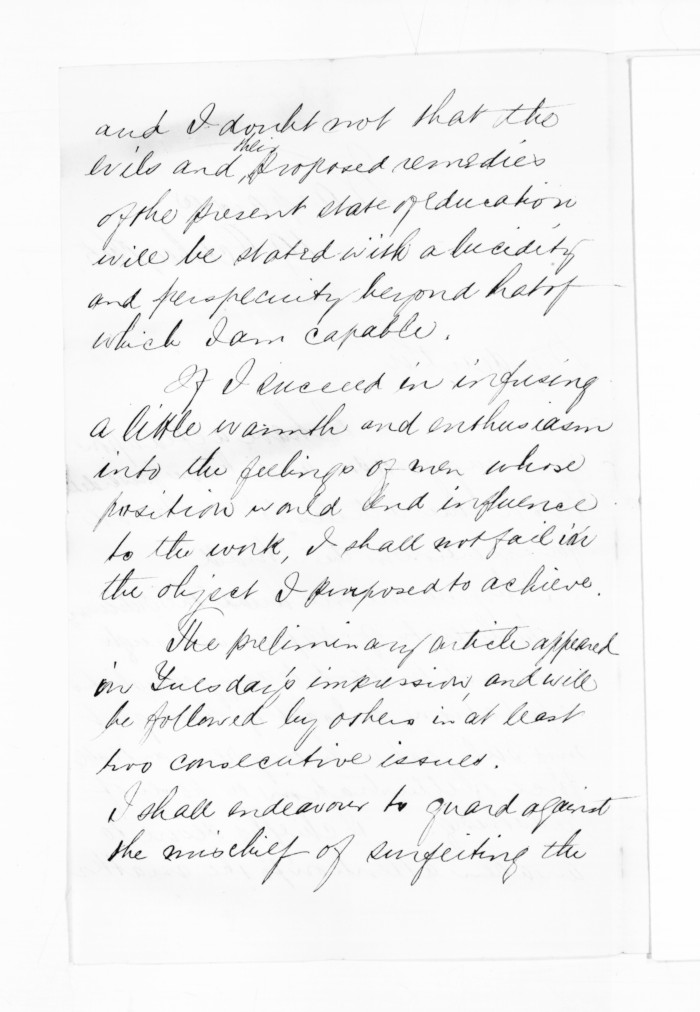 and I doubt not that the
evils and, their proposed remedies
of the present state of education
will be stated with a lucidity
and perspecuity beyond that of
which I am capable.
If I succeed in infusing
a little warmth and enthusiasm
into the feelings of men whose
position would lend influence
to the work, I shall not fail in
the object I purposed to achieve.
The preliminary article appeared
in Tuesday's impression, and will
be followed by others in at least
two consecutive issues.
I shall endeavour to guard against
the mischief of surfeiting the